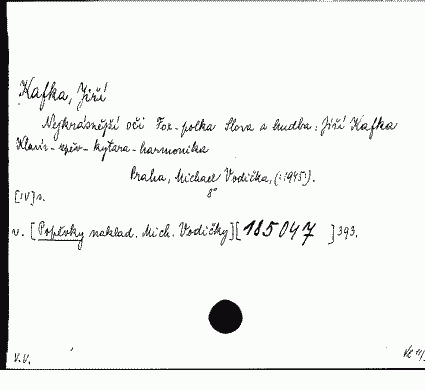 Kafka, Jiří
Nejkrásnější oči Fox-polka Slova a hudba: Jiří Kafka
Klavír-zpěv-kytara-harmonika
Praha, Michael Vodička, (:1945:).
8°
[IV] s.
v. [Popěvky naklad. Mich. Vodičky][185047 ] 393.
V.V.